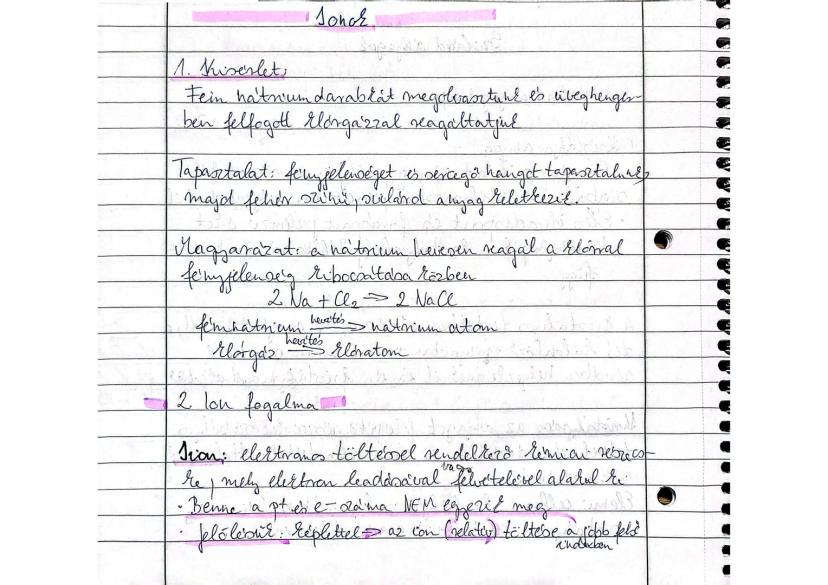 Ionok
1. Kísérlet:
Fém nátriumdarabkát megolvasztunk és üveghenger-
ben felfogott klórgázzal reagáltatjuk
Tapasztalat: fényjelenséget és sercegő hangot tapasztalunk,
majd fehér színű, szilárd anyag keletkezik.
Magyarázat: a nátrium hevesen reagál a klórral
fényjelenség kibocsátása közben
2 Na + Cl₂ → 2 NaCl
fémnátrium hevítés→ nátrium atom
klórgáz hevítés→ klóratom
2. Ion fogalma
Ion: elektromos töltéssel rendelkező kémiai részecs-
ke, mely elektron leadásával vagy felvételével alakul ki.
· Benne a p+ és e- száma NEM egyezik meg
· jelölésük: képlettel → az ion (relatív) töltése a jobb felső
indexben